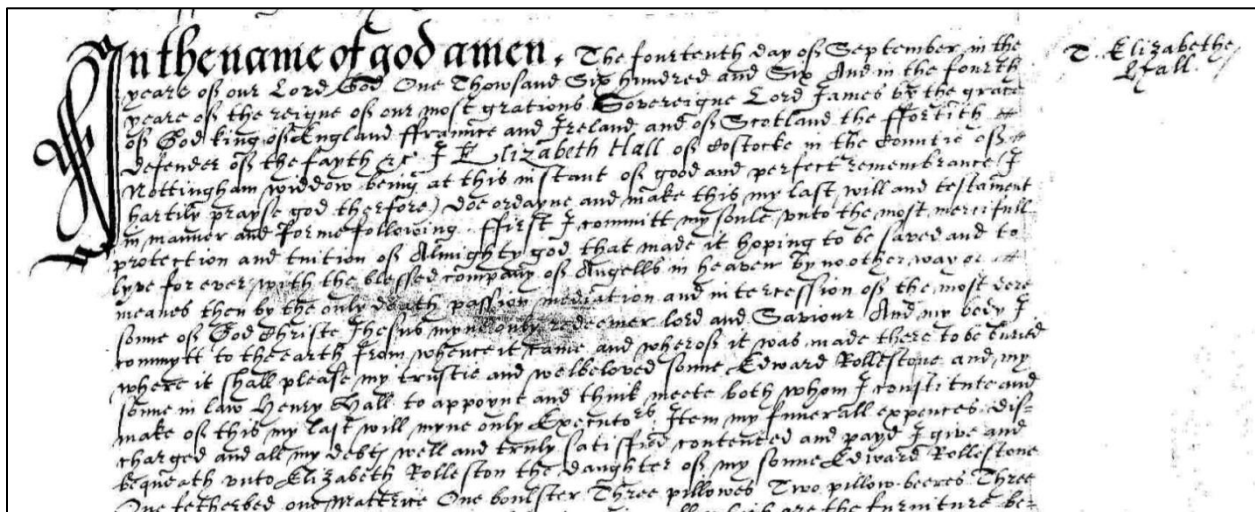 In the name of god amen, The fourtenth day of September in the
yeare of our Lord God One Thowsand Six hundred and Six And in the fourth
yeare of the reigne of our most gratious Sovereigne Lord James by the grace
of God king of England ffraunce and Ireland and of Scotland the ffortith
defender of the fayth &c I Elizabeth Hall of Costocke in the Countie of
Nottingham widdow being at this instant of good and perfect remembrance (I
hartily prayse god therfore) doe ordayne and make this my last will and testament
in manner and forme following. ffirst I committ my soule unto the most mercifull
protection and tuition of Almighty god that made it hoping to be saved and to
lyve for ever, with the blessed company of Angells in heaven by no other way or
meanes then by the only death passion mediation and intercession of the most dere
sonne of God Christe Jhesus myne only redeemer lord and Saviour And my body I
committ to the earth from whence it came and wherof it was made there to be buried
where it shall please my trustie and welbeloved sonne Edward Rollestone and my
sonne in law Henry Hall to appoynt and think meete both whom I constitute and
make of this my last will myne only Executors Item my funerall expences dis=
charged and all my debts well and truly satisfied contented and payd I give and
bequeath unto Elizabeth Rolleston the daughter of my sonne Edward Rollestone
One fetherbed one mattrice One boulster Three pillowes Two pillow-beeres Three
are the furniture be-
T. Elizabethe
Hall.